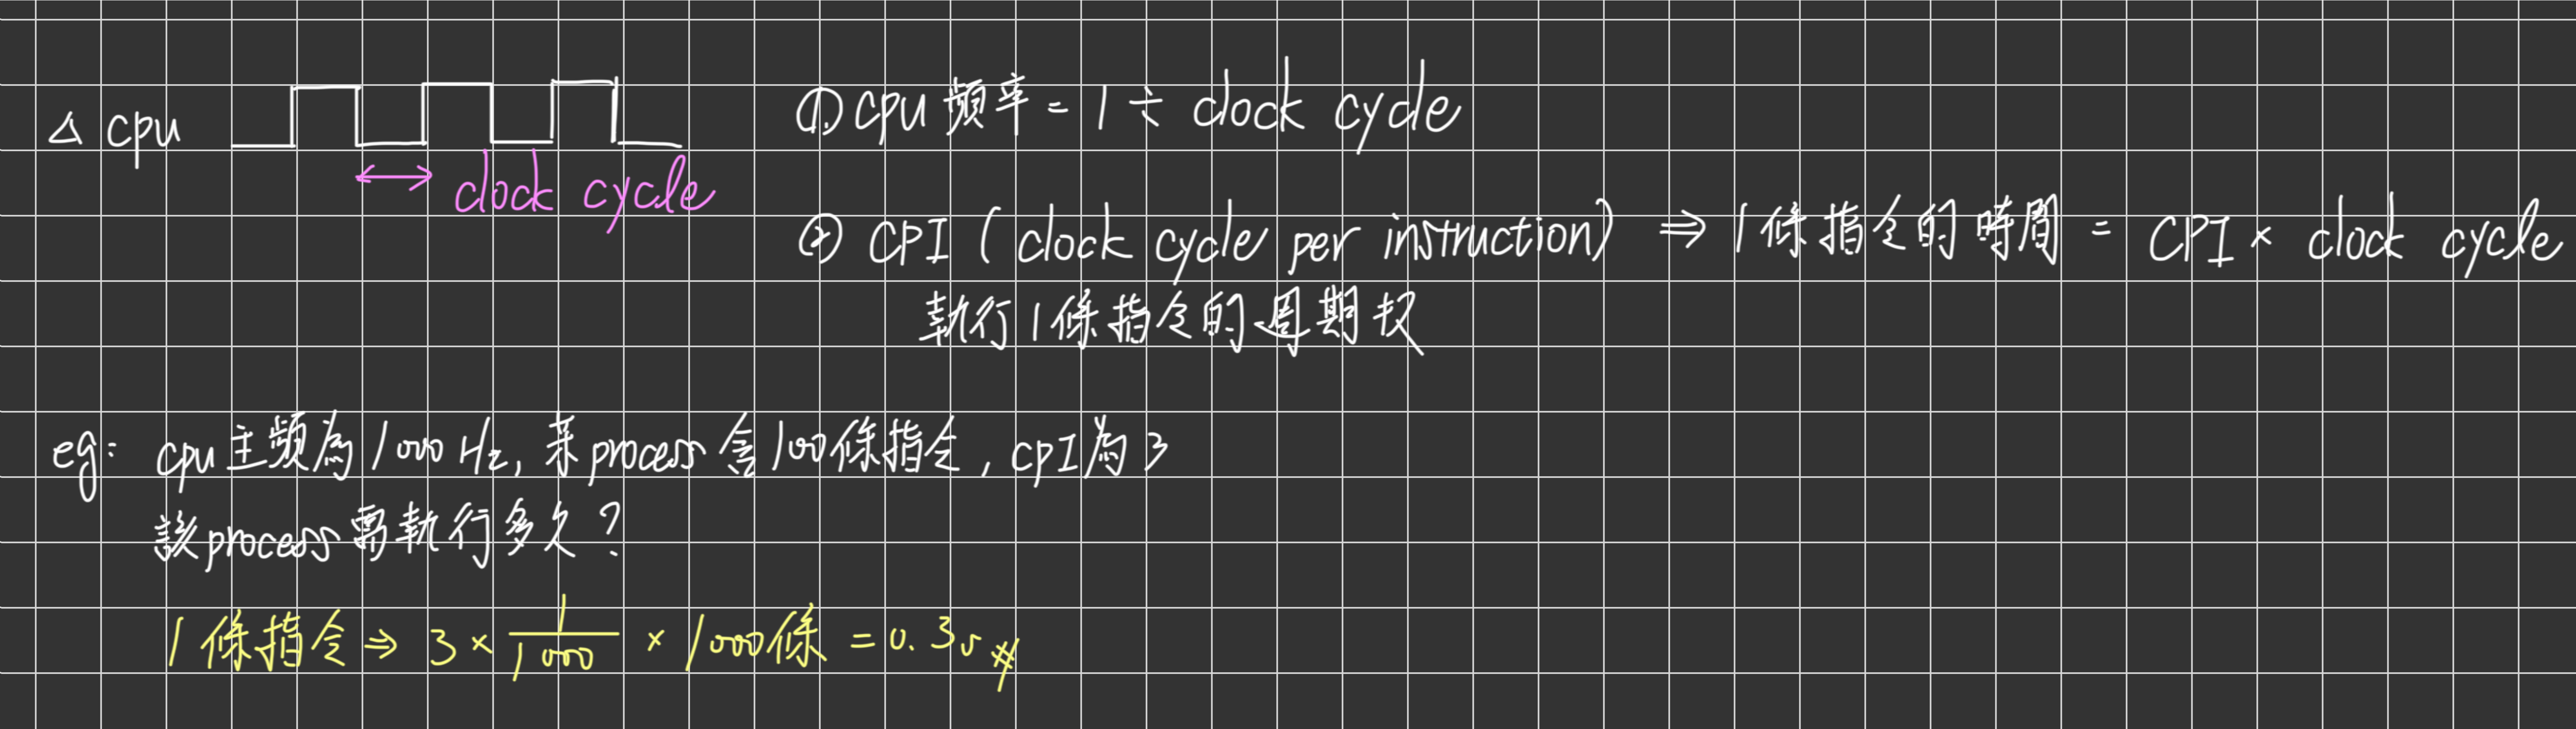 △ cpu
clock cycle
① cpu 頻率 = 1 ÷ clock cycle
② CPI ( clock cycle per instruction) ⇒ 1條指令的時間 = CPI × clock cycle
執行1條指令的週期数
eg: cpu主頻為1000 Hz, 某process含100條指令, CPI為3
該process需執行多久?
1條指令 ⇒ 3 × 1/1000 × 1000條 = 0.3s #